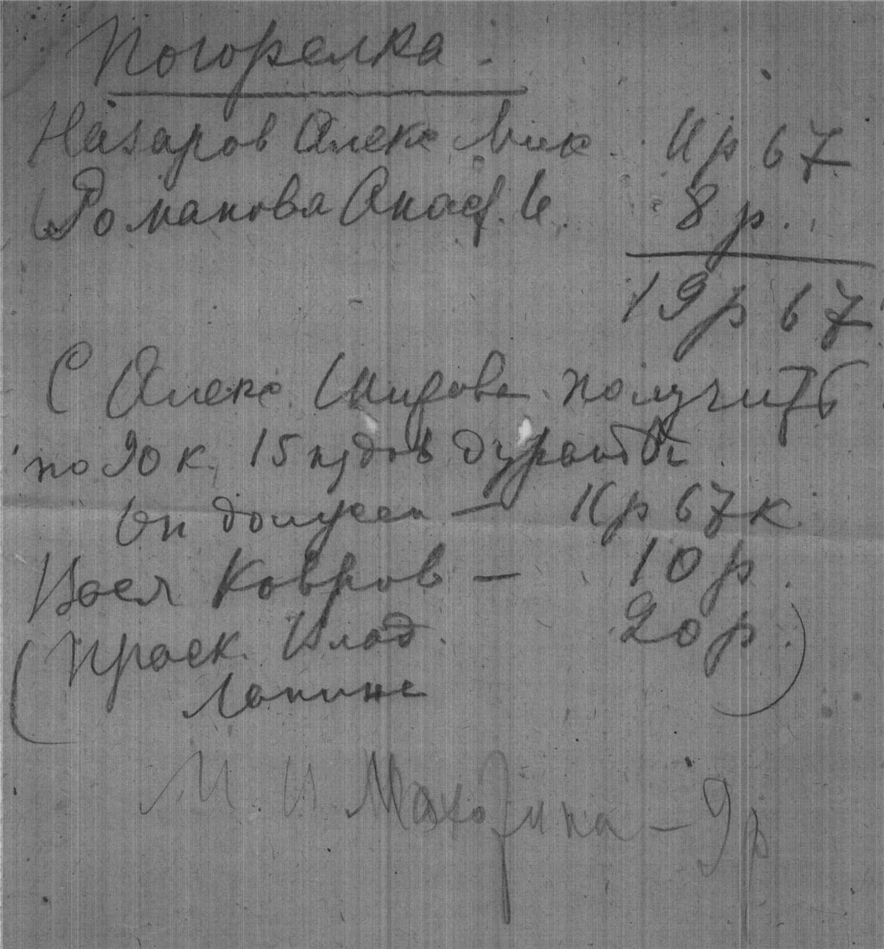 Погорелка.
Назаров Алекс Мих. 11р 67
Романова Анаст. И. 8 р.
19 р 67
С Алекс. получить
по 90 к. 15 пудов дуранды
Он должен — 11 р 67 к
Васил Ковров — 10 р.
(Праск. Влад. 20 р.)
Лапина
М. И. — 9 р